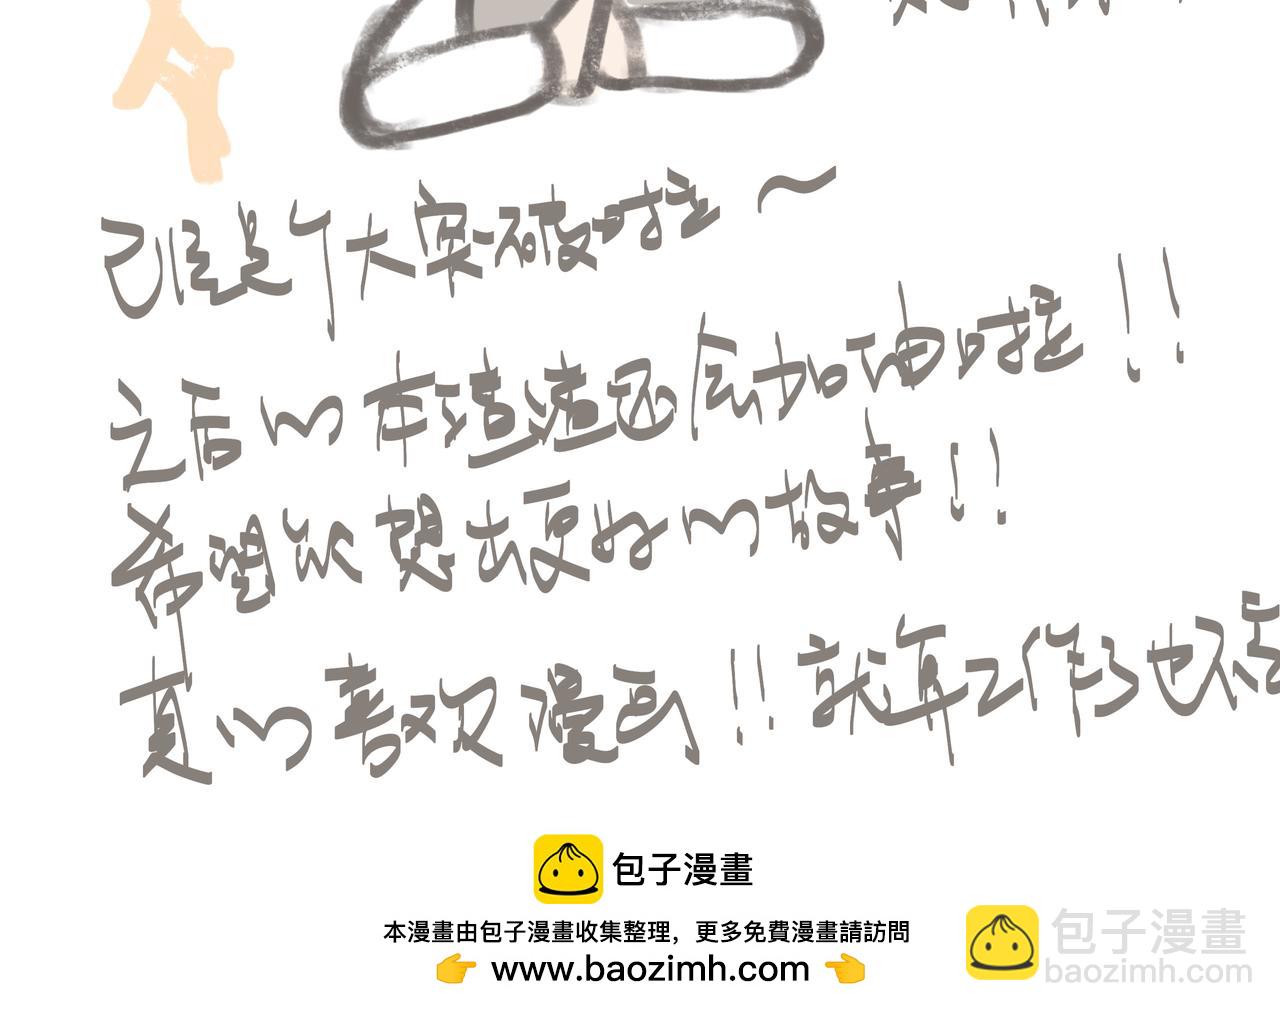 已经是个大突破啦～
之后的本渣渣还会加油啦！！
希望能想出更好的故事！！
真的喜欢漫画！！就算工作了也不
包子漫畫
本漫畫由包子漫畫收集整理，更多免費漫畫請訪問
👉 www.baozimh.com 👈
包子漫畫
baozimh.com